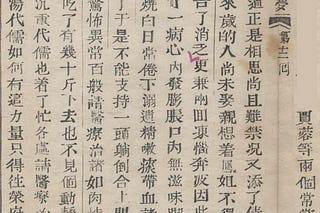 賈蓉等兩個常常
第十二回
正是相思尚且難禁况又添了債
來歲的人尚未娶親想着鳳姐不得
告了消乏更兼兩回凍惱奔波因此
一病心内發膨脹口内無滋味
燒白日常倦下溺遺精嗽痰帶血
了于是不能支持一頭躺倒合上眼
驚怖異常百般請醫療治諸如肉桂
吃了有幾十斤下去也不見個動
沉重代儒也着了忙各處請醫療
湯代儒如何有這力量只得往榮府